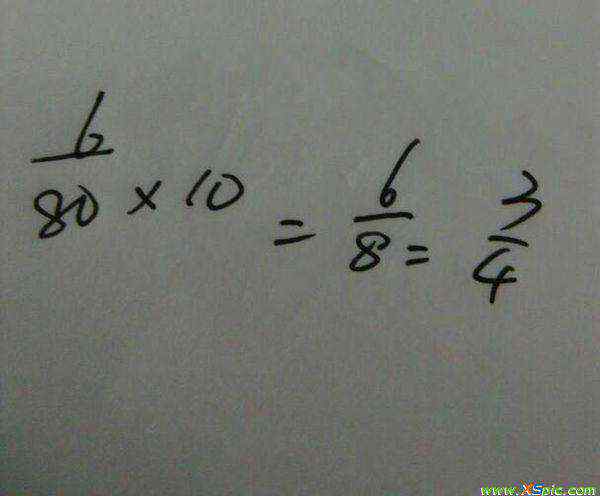 6/80 × 10 = 6/8 = 3/4
www.XSpic.com